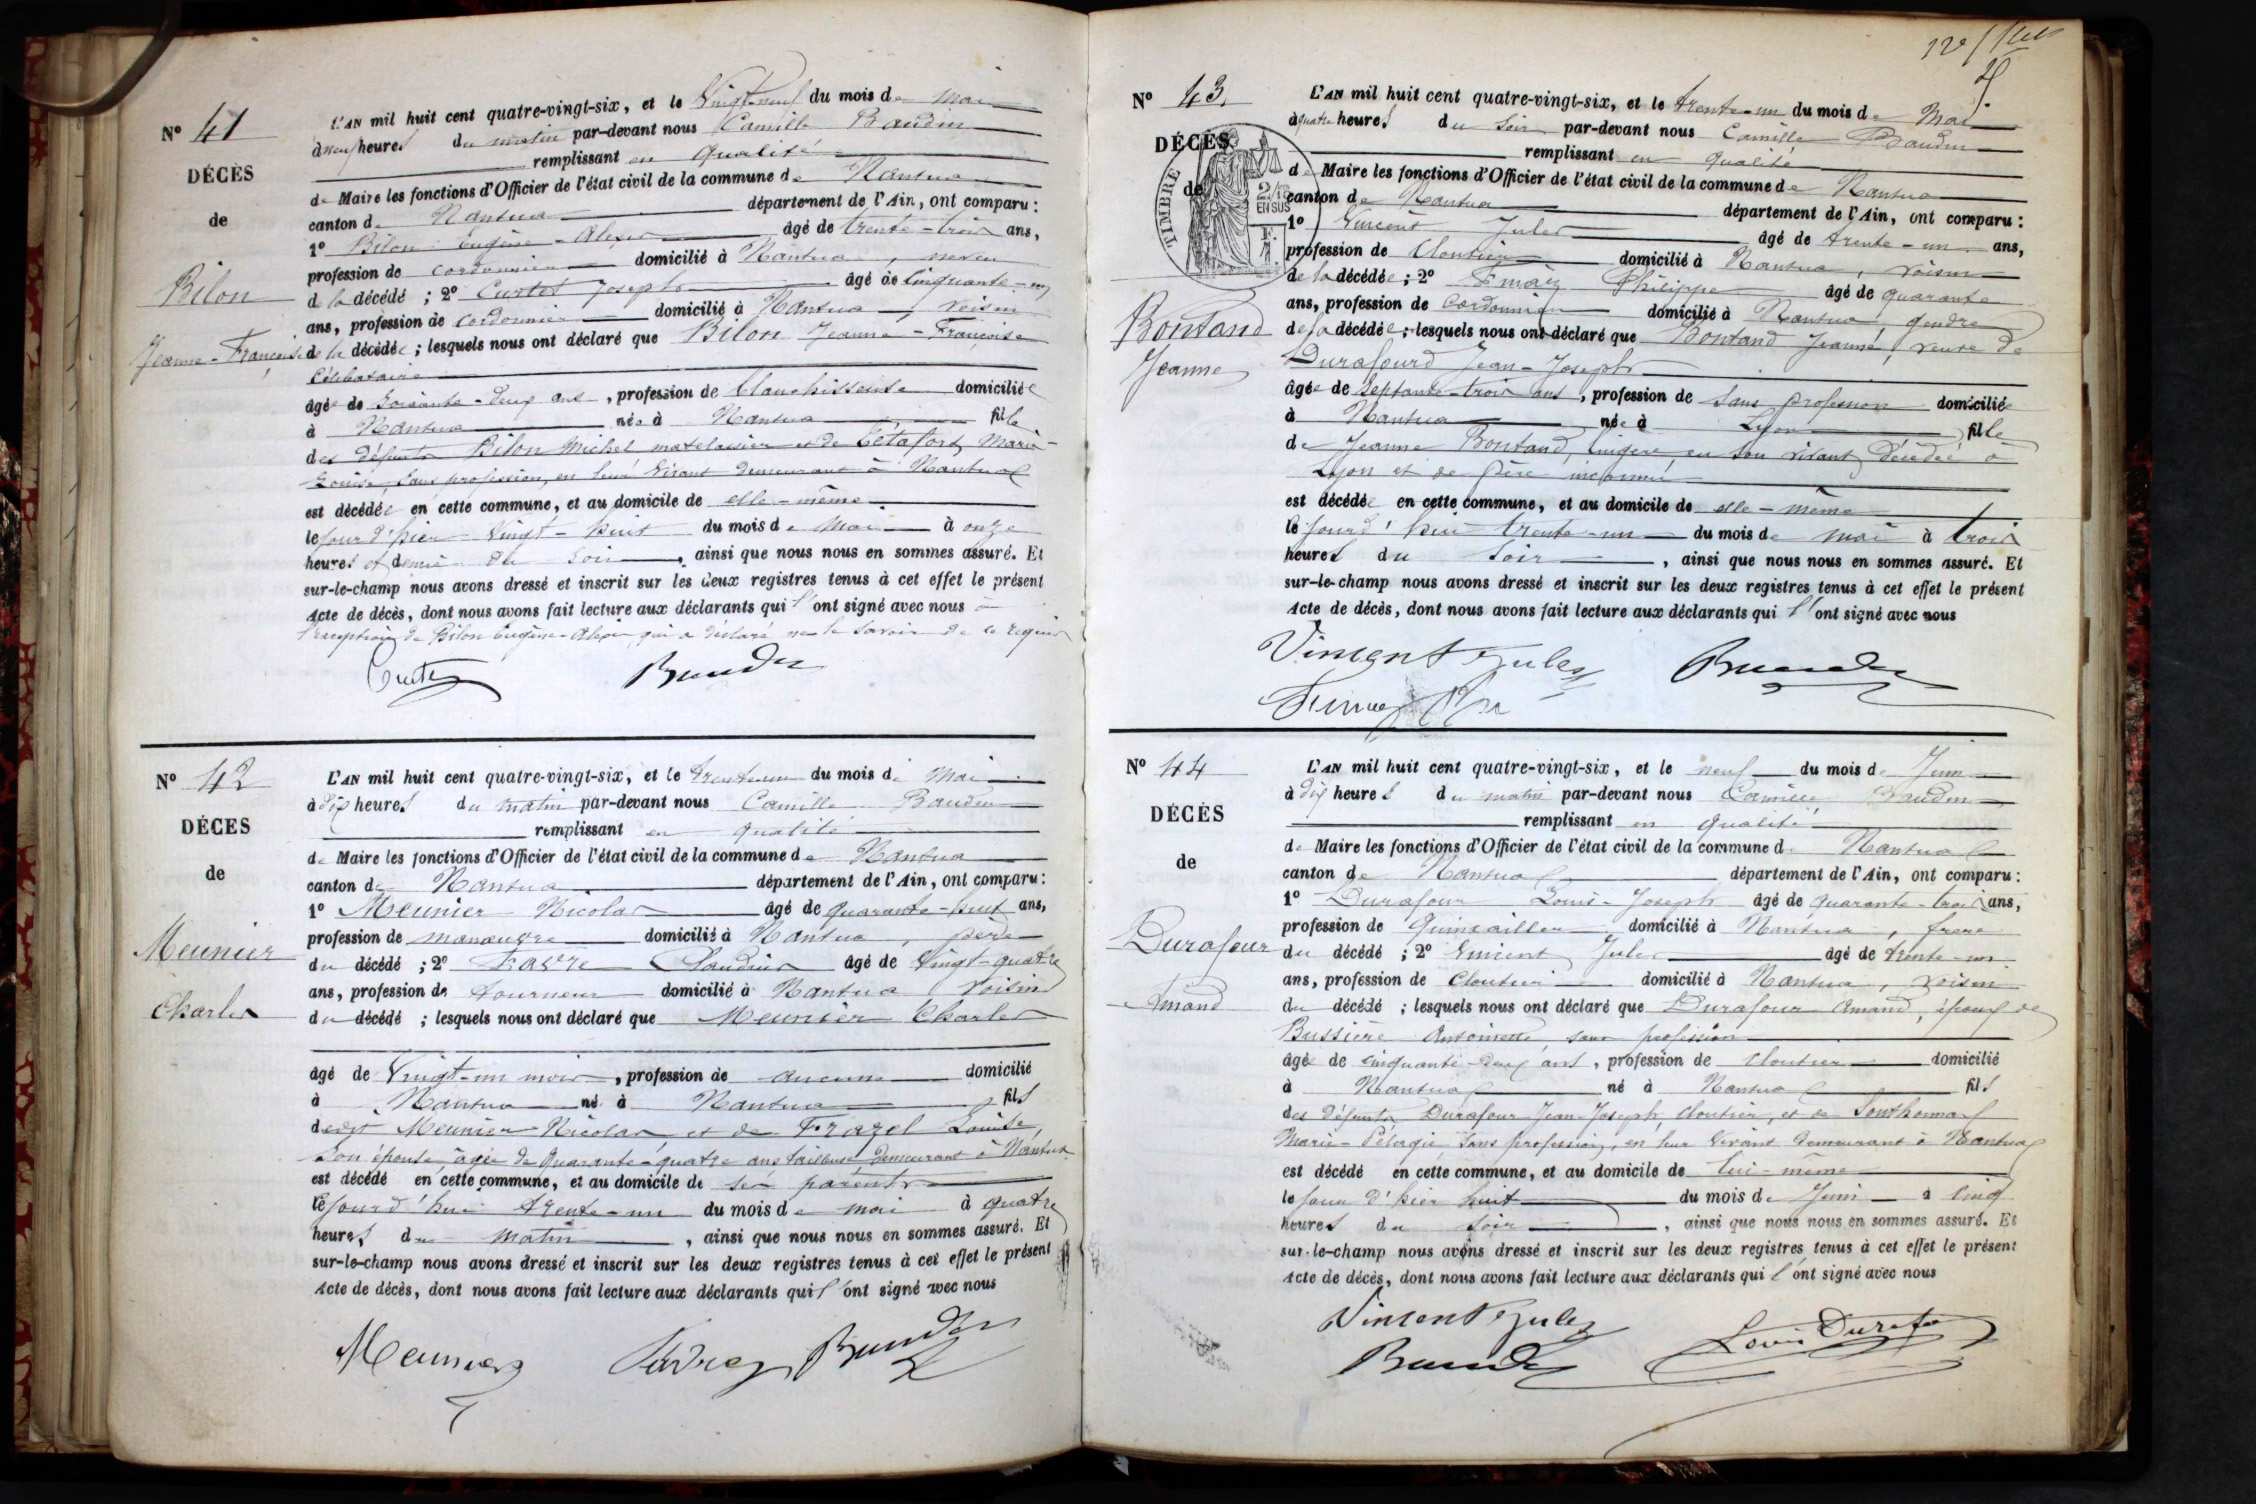 Nº 41
DÉCÈS
de
Bilon
Jeanne-Françoise
L'AN mil huit cent quatre-vingt-six, et le Vingt-neuf du mois de Mai
à neuf heures du matin par-devant nous Camille Baudin
remplissant en qualité
de Maire les fonctions d'Officier de l'état civil de la commune de Nantua
canton de Nantua département de l'Ain, ont comparu :
1º Bilon Eugène-Alexis âgé de trente-trois ans,
profession de cordonnier domicilié à Nantua, neveu
de la décédé ; 2º Curtet Joseph âgé de Cinquante-un
ans, profession de cordonnier domicilié à Nantua, voisin
de la décédée ; lesquels nous ont déclaré que Bilon Jeanne-Françoise
Célibataire
âgée de soixante-deux ans, profession de blanchisseuse domiciliée
à Nantua née à Nantua fille
des défunts Bilon Michel matelassier et de Tétafort Marie-
Louise, sans profession, en leur vivant demeurant à Nantua
est décédée en cette commune, et au domicile de elle-même
le jour d'hier vingt-huit du mois de Mai à onze
heures et demie du soir, ainsi que nous nous en sommes assuré. Et
sur-le-champ nous avons dressé et inscrit sur les deux registres tenus à cet effet le présent
Acte de décès, dont nous avons fait lecture aux déclarants qui l'ont signé avec nous à
l'exception de Bilon Eugène-Alexis qui a déclaré ne le savoir de ce requis
Curtet Baudin
Nº 42
DÉCES
de
Meunier
Charles
L'AN mil huit cent quatre-vingt-six, et le trente-un du mois de Mai
à dix heures du matin par-devant nous Camille Baudin
remplissant en qualité
de Maire les fonctions d'Officier de l'état civil de la commune de Nantua
canton de Nantua département de l'Ain, ont comparu :
1º Meunier Nicolas âgé de quarante-huit ans,
profession de manœuvre domicilié à Nantua, père
du décédé ; 2º Favre Claudius âgé de Vingt-quatre
ans, profession de tourneur domicilié à Nantua, voisin
du décédé ; lesquels nous ont déclaré que Meunier Charles
âgé de Vingt-un mois, profession de aucune domicilié
à Nantua né à Nantua fils
dudit Meunier Nicolas et de Frazel Louise,
son épouse âgée de quarante-quatre ans tailleuse demeurant à Nantua
est décédé en cette commune, et au domicile de ses parents
le jourd'hui trente-un du mois de mai à quatre
heures du matin, ainsi que nous nous en sommes assuré. Et
sur-le-champ nous avons dressé et inscrit sur les deux registres tenus à cet effet le présent
Acte de décès, dont nous avons fait lecture aux déclarants qui l'ont signé avec nous
Meunier Favre Baudin
Nº 43
DÉCÈS
de
TIMBRE
2/10
EN SUS
Bontand
Jeanne
L'AN mil huit cent quatre-vingt-six, et le trente-un du mois de Mai
à quatre heures du soir par-devant nous Camille Baudin
remplissant en qualité
de Maire les fonctions d'Officier de l'état civil de la commune de Nantua
canton de Nantua département de l'Ain, ont comparu :
1º Vincent Jules âgé de trente-un ans,
profession de Cloutier domicilié à Nantua, voisin
de la décédée ; 2º Philippe âgé de quarante
ans, profession de cordonnier domicilié à Nantua, gendre
de la décédée ; lesquels nous ont déclaré que Bontand Jeanne, veuve de
Durafourd Jean-Joseph
âgée de septante-trois ans, profession de sans profession domiciliée
à Nantua née à Lyon fille
de Jeanne Bontand, lingère en son vivant, décédée à
Lyon et de père inconnu
est décédée en cette commune, et au domicile de elle-même
le jourd'hui trente-un du mois de mai à trois
heures du soir, ainsi que nous nous en sommes assuré. Et
sur-le-champ nous avons dressé et inscrit sur les deux registres tenus à cet effet le présent
Acte de décès, dont nous avons fait lecture aux déclarants qui l'ont signé avec nous
Vincent Jules Baudin
Nº 44
DÉCÈS
de
Durafour
Amand
L'AN mil huit cent quatre-vingt-six, et le neuf du mois de Juin
à dix heures du matin par-devant nous Camille Baudin
remplissant en qualité
de Maire les fonctions d'Officier de l'état civil de la commune de Nantua
canton de Nantua département de l'Ain, ont comparu :
1º Durafour Louis-Joseph âgé de quarante-trois ans,
profession de Quincailler domicilié à Nantua, frère
du décédé ; 2º Vincent Jules âgé de trente-un
ans, profession de Cloutier domicilié à Nantua, voisin
du décédé ; lesquels nous ont déclaré que Durafour Amand, époux de
Bussière Antoinette, sans profession
âgé de cinquante-deux ans, profession de cloutier domicilié
à Nantua né à Nantua fils
des défunts Durafour Jean-Joseph, cloutier, et de Sonthonnax
Marie-Pélagie sans profession, en leur vivant demeurant à Nantua
est décédé en cette commune, et au domicile de lui-même
le jour d'hier huit du mois de Juin à cinq
heures du soir, ainsi que nous nous en sommes assuré. Et
sur-le-champ nous avons dressé et inscrit sur les deux registres tenus à cet effet le présent
Acte de décès, dont nous avons fait lecture aux déclarants qui l'ont signé avec nous
Vincent Jules
Baudin Louis Durafour